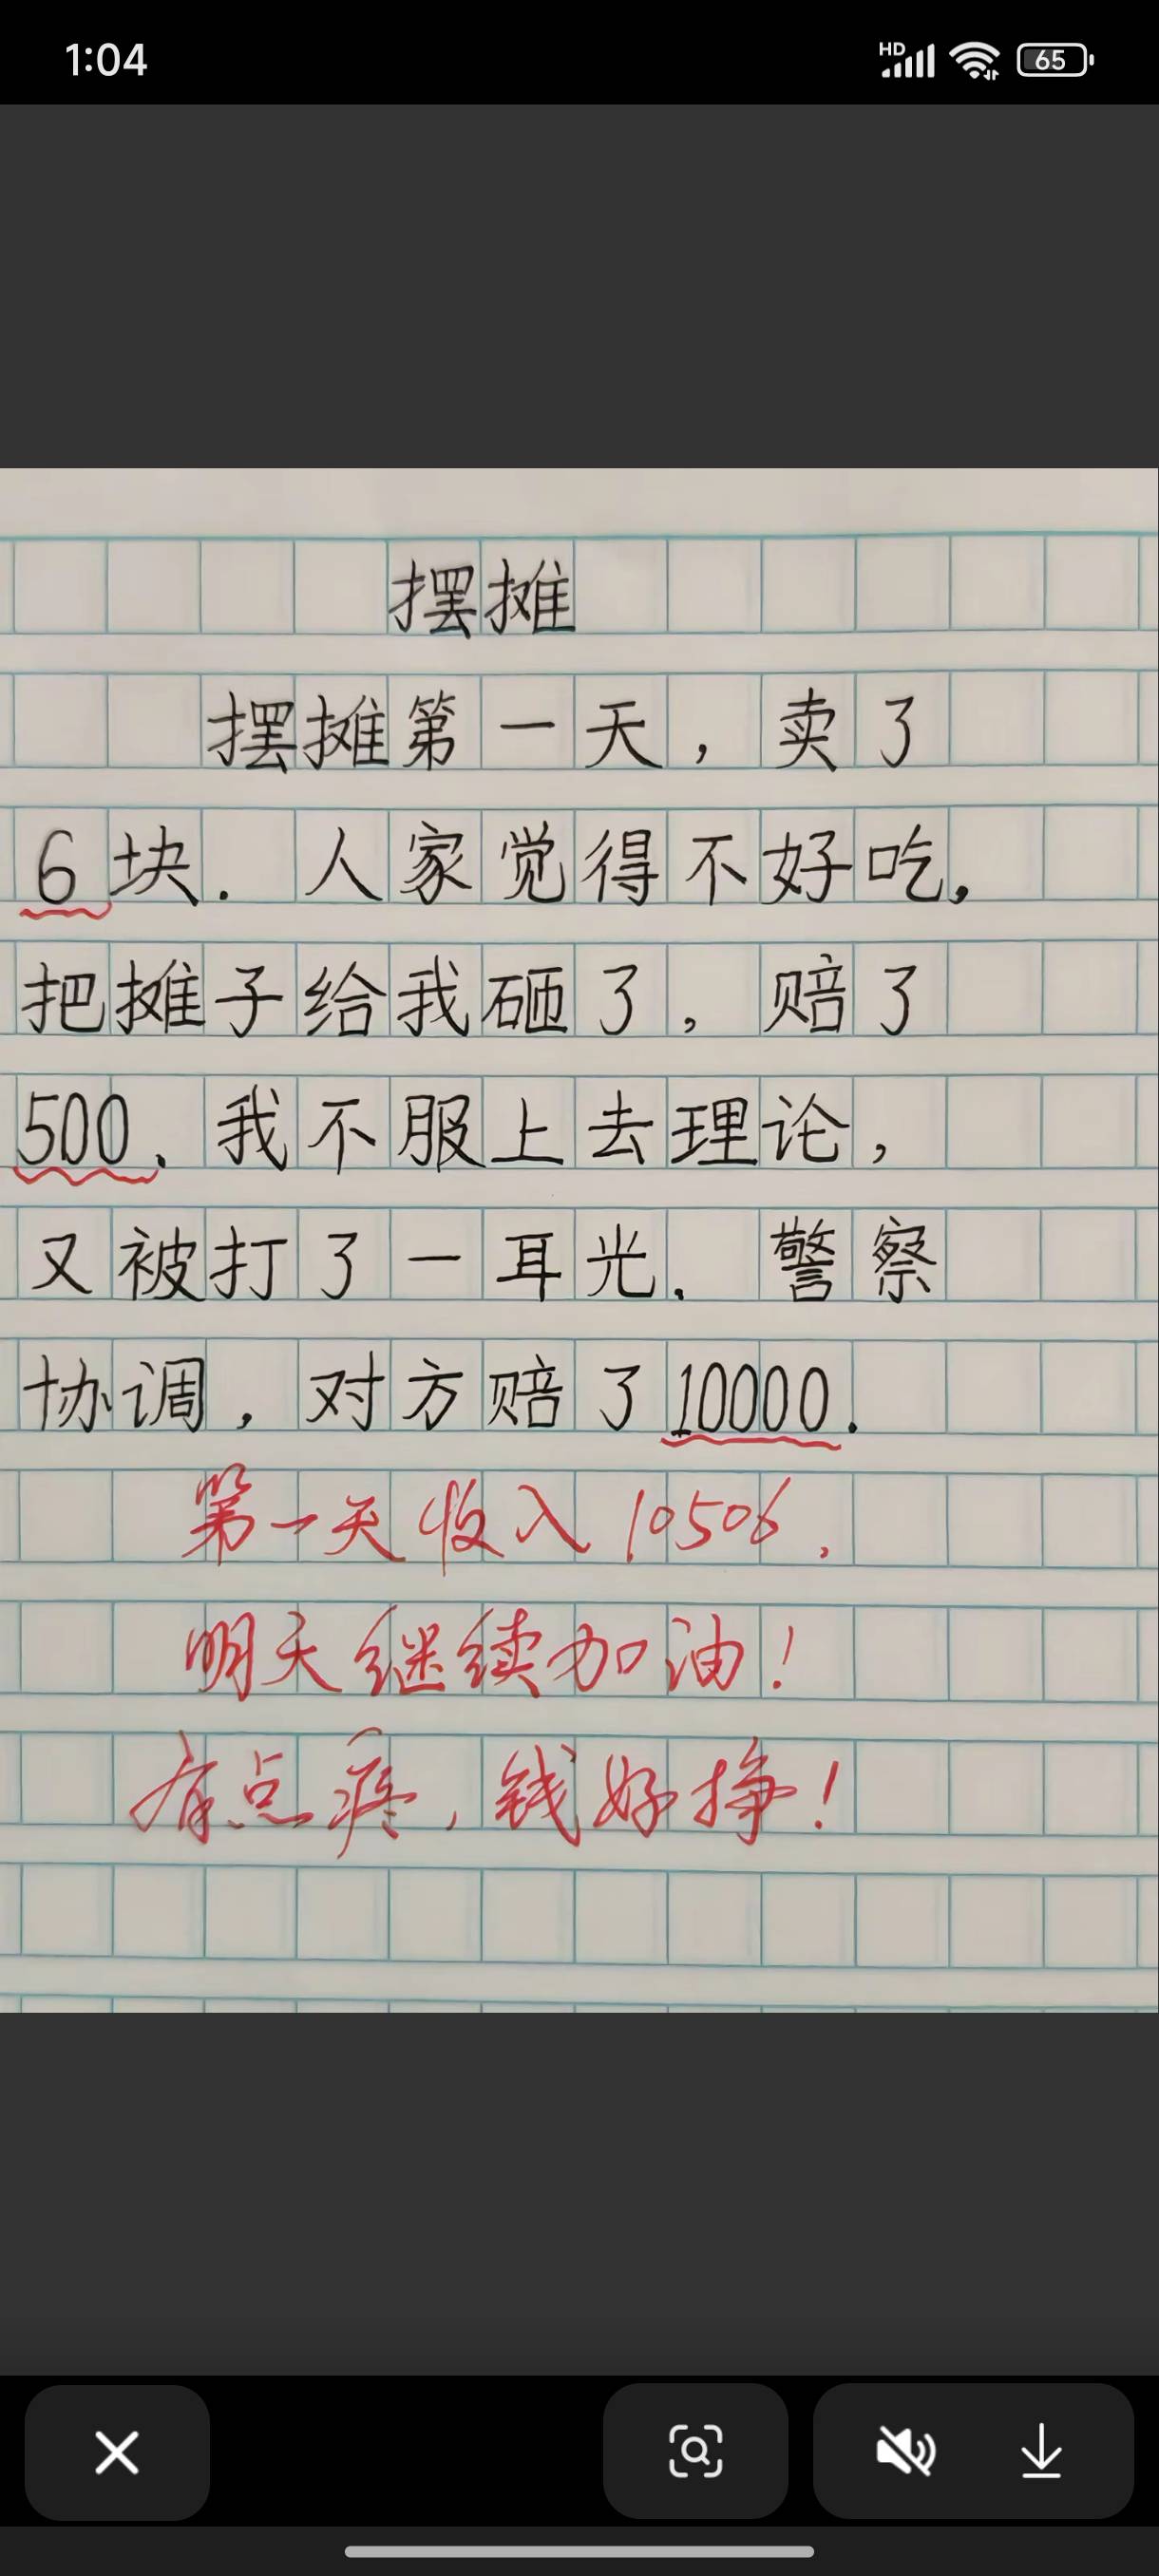 1:04
HD
65
摆摊
摆摊第一天，卖了
6块．人家觉得不好吃，
把摊子给我砸了，赔了
500．我不服上去理论，
又被打了一耳光．警察
协调，对方赔了10000．
第一天收入10506．
明天继续加油！
有点疼，钱好挣！